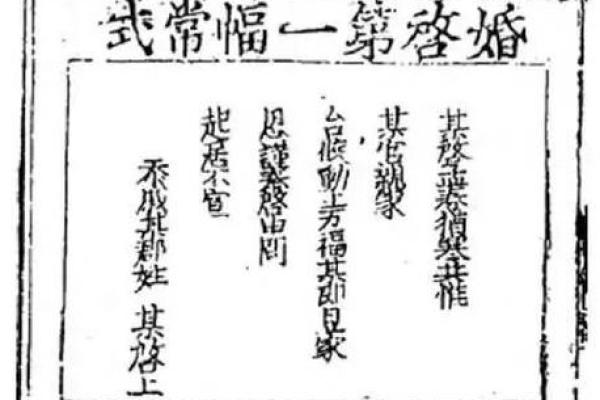 婚啓第一幅常式
某啓孟春猶寒共惟
某官親家
台候動止万福某即日蒙
恩謹奉啓申問
起居不宣
忝戚某郡姓 某啓上